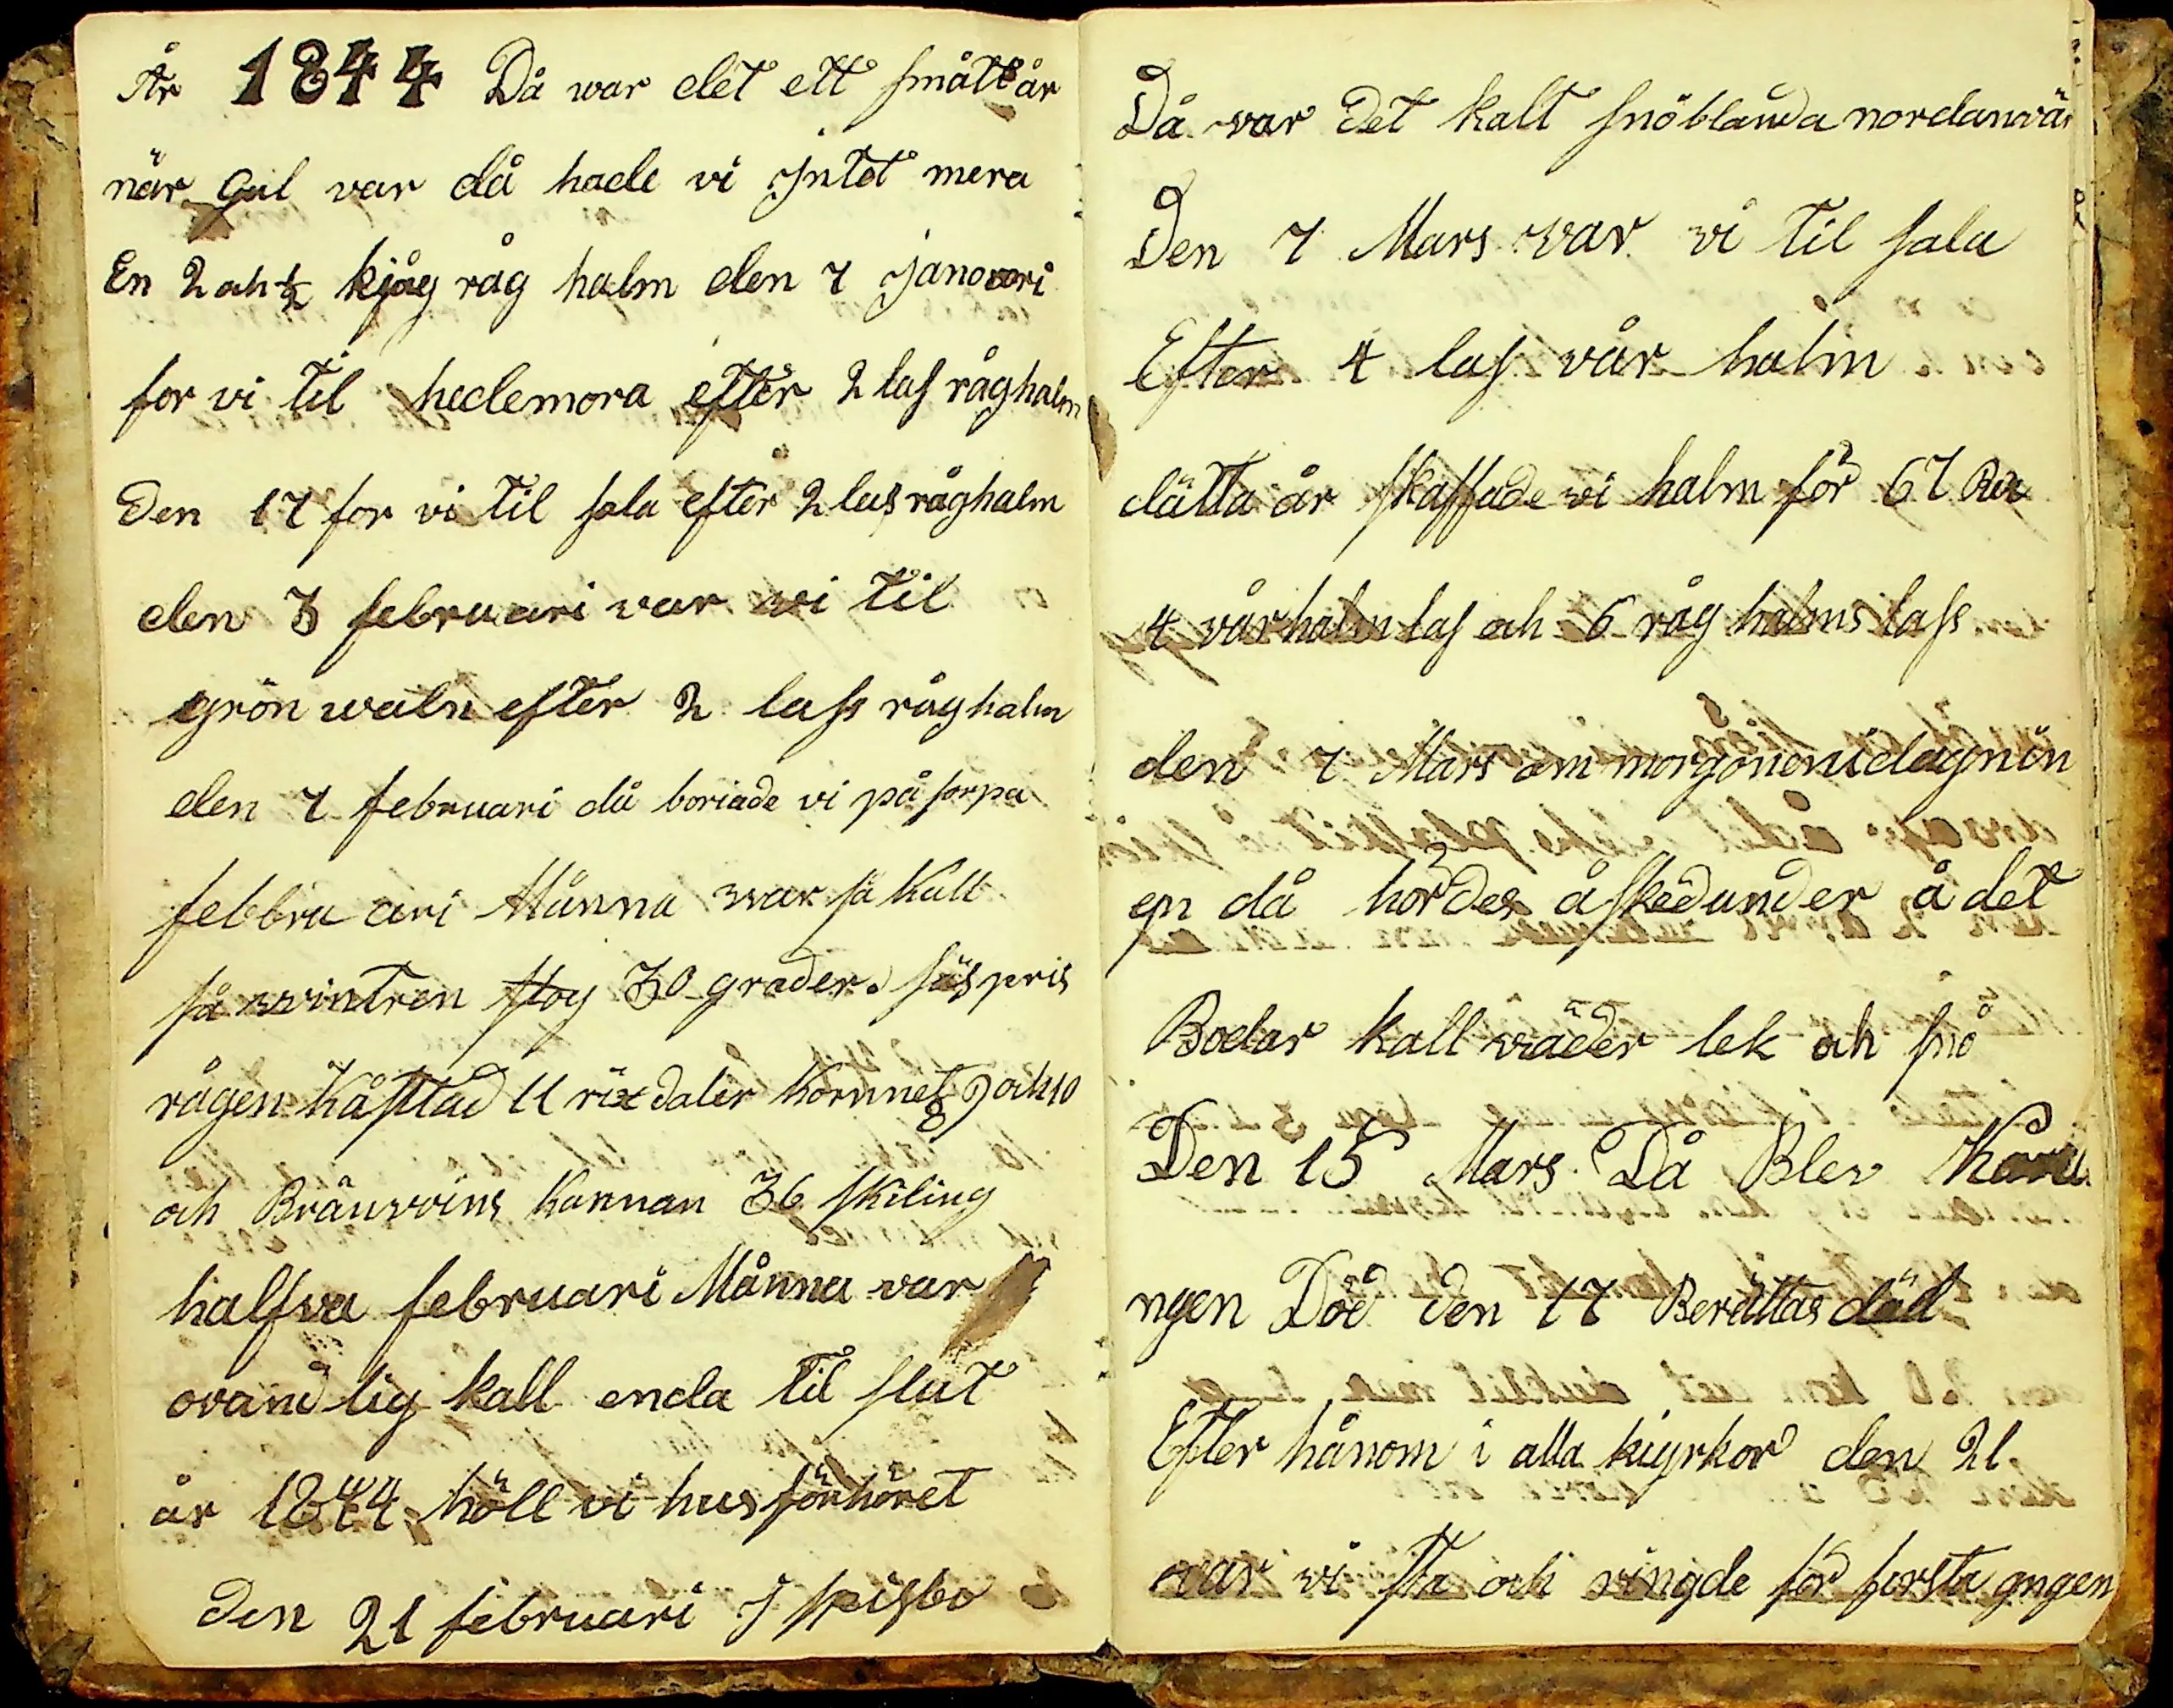 År 1844 Då war det ett smått år
när Gul var då hade vi jntet mera
En 2 ah ½ kjåg råg halm den 7 janovari
for vi til hedemora efter 2 las råghalm
Den 17 for vi til sala efter 2 las råghalm
den 3 februari var wi til
grön waln efter 2 lass råghalm
den 7 februari då boriade vi på sorpa
febbru ari Månna war så kall
så wintren stog 30 grader. säspris
rågen kåstad 11 rixdaler kornnet 9 och 10
8
och Bränwins kannan 36 skiling
halfva februari Månna var
ovand lig kall enda til slut
år 1844 höll vi hus förhöret
Den 21 februari J spisbo
Då var det kalt snöblanda nordanvär
Den 7 Mars war vi til sala
Efter 4 las vår halm
dätta år skaffade vi halm för 67 Rdr
4 vårhalm las ah 6 råg halms lass
den 7 Mars om morgonen i dagnin
en då hördes åskedunder å det
Bodar kall wäder lek ah snö
Den 15 Mars Då Blev Konu
ngen Död den 17 Berättas död
Efter hånom i alla kiyrkor den 21
var vi sta och ringde för forsta gngen